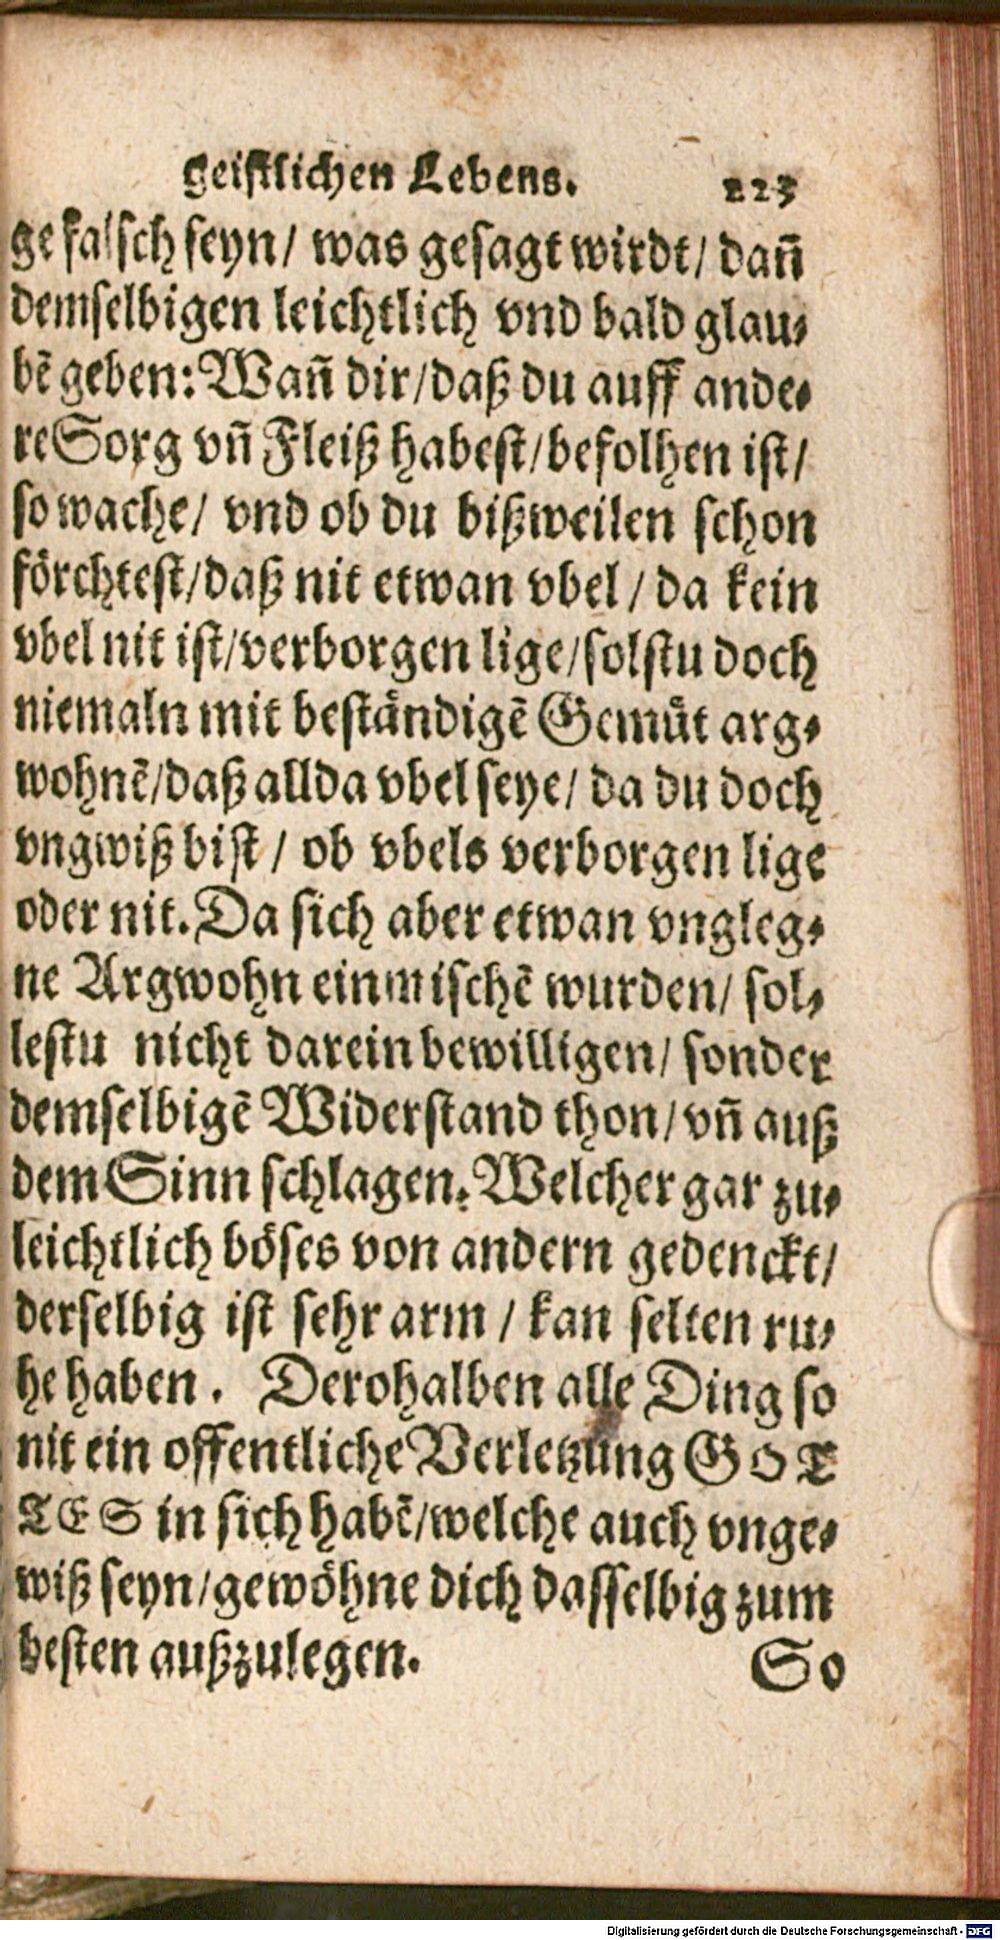 geistlichen Lebens. 223
ge falsch seyn/ was gesagt wirdt/ dañ
demselbigen leichtlich vnd bald glau-
bẽ geben: Wañ dir/daß du auff ande-
re Sorg vñ Fleiß habest/befolhen ist/
so wache/ vnd ob du bißweilen schon
förchtest/daß nit etwan vbel / da kein
vbel nit ist/verborgen lige/solstu doch
niemaln mit beständigẽ Gemüt arg-
wohnẽ/daß allda vbel seye/ da du doch
vngwiß bist / ob vbels verborgen lige
oder nit. Da sich aber etwan vngleg-
ne Argwohn einmischẽ wurden/ sol-
lestu nicht darein bewilligen/ sonder
demselbigẽ Widerstand thon/vñ auß
dem Sinn schlagen. Welcher gar zu-
leichtlich böses von andern gedenckt/
derselbig ist sehr arm / kan selten ru-
he haben. Derohalben alle Ding so
nit ein offentliche Verletzung GOT
TES in sich habẽ/welche auch vnge-
wiß seyn/gewöhne dich dasselbig zum
besten außzulegen. So
Digitalisierung gefördert durch die Deutsche Forschungsgemeinschaft - DFG